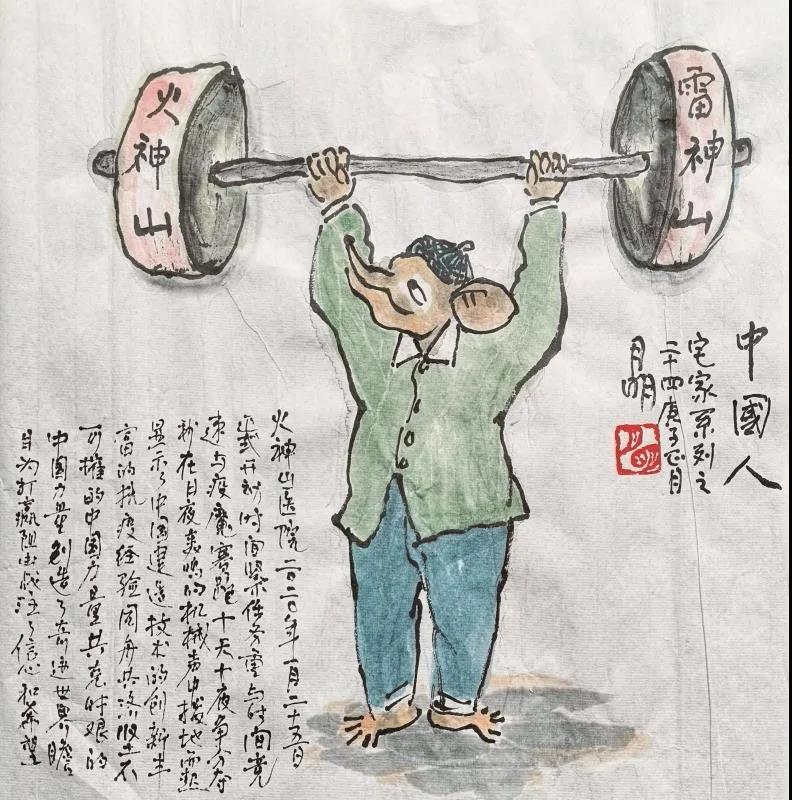 火神山
雷神山
中國人
宅家系列之
二十四庚子正月
月明
火神山医院二〇二〇年一月二十五日
正式开时间紧任务重与时间竞
速与疫魔赛跑十天十夜争分夺
秒在日夜轰鸣的机械声中拔地而起
显示了中国建造技术的创新丰
富的抗疫经验同舟共济坚不
可摧的中国力量共克时艰的
中国力量创造了奇迹世界瞻
目为打赢阻击战注了信心和希望